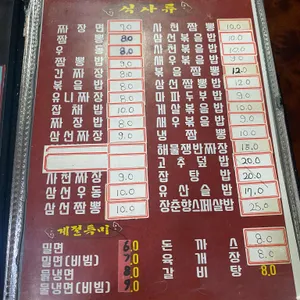 식사류
짜장면 7.0
짬뽕 8.0
우동 8.0
짬뽕밥 9.0
간짜장 8.0
볶음밥 8.0
유니짜장 8.0
잡채밥 10.0
짜장밥 8.0
삼선짜장 9.0
사천짜장 9.0
삼선우동 10.0
삼선짬뽕 10.0
사천짬뽕 10.0
삼선볶음밥 10.0
사천볶음밥 10.0
새우볶음밥 10.0
볶음짬뽕 12.0
삼선짬뽕밥
마파두부밥 9.0
게살볶음밥
냉짬뽕 10.0
해물쟁반짜장 18.0
고추덮밥 20.0
잡탕밥 20.0
유산슬밥 17.0
장춘향스페셜밥 25.0
계절특미
밀면 6.0
밀면(비빔) 7.0
물냉면
물냉면(비빔) 9.0
돈까스 8.0
육개장 8.0
갈비탕 8.0